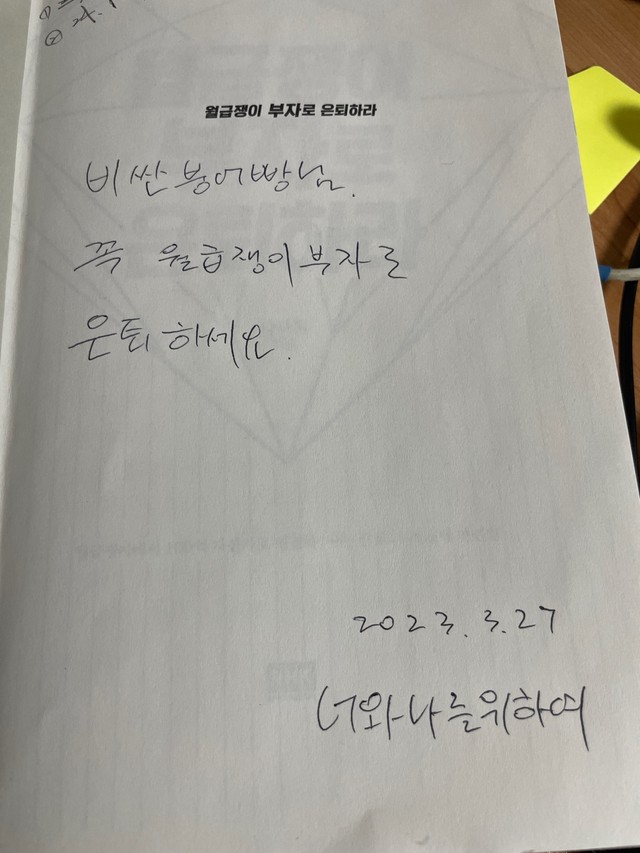 월급쟁이 부자로 은퇴하라
비싼붕어빵님.
꼭 월급쟁이부자로
은퇴하세요.
2023.3.27
너와나를위하여